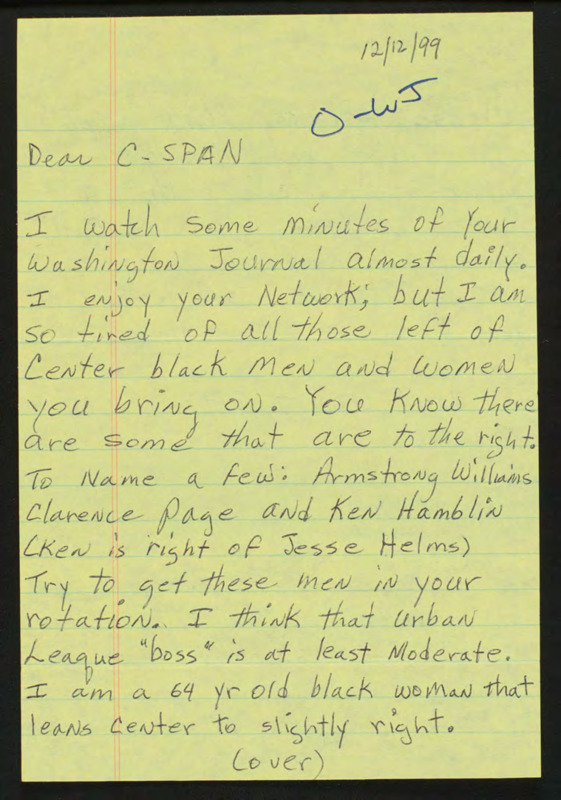 12/12/99
O-WJ
Dear C-SPAN
I watch some minutes of your
Washington Journal almost daily.
I enjoy your Network; but I am
so tired of all those left of
Center black men and women
you bring on. You know there
are some that are to the right.
To Name a few: Armstrong Williams
Clarence Page and Ken Hamblin
(Ken is right of Jesse Helms)
Try to get these men in your
rotation. I think that Urban
League "boss" is at least Moderate.
I am a 64 yr old black woman that
leans center to slightly right.
(over)